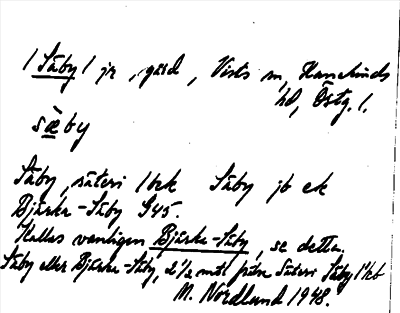 1 Säby 1 jr, gård, Vists sn, Hanekinds
hd, Östg. l.
sæ̀by
Säby, säteri 1 bek Säby jb ek
Bjärka-Säby G45.
Kallas vanligen Bjärka-Säby, se detta.
Säby eller Bjärka-Säby, 2 1/2 mtl frälse Säteri Säby
M. Nordlund 1948.